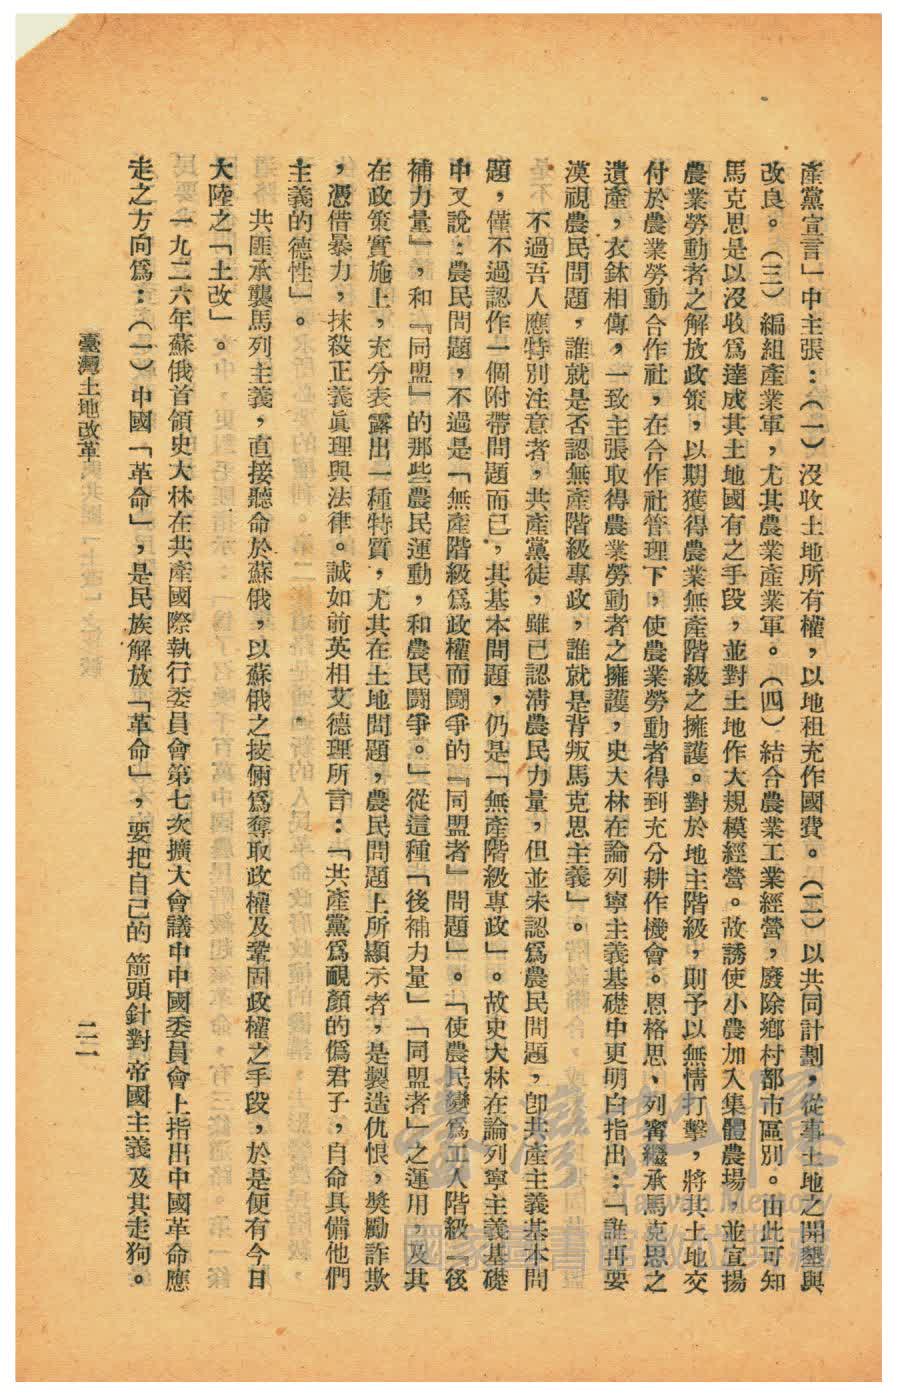 產黨宣言」中主張：（一）沒收土地所有權，以地租充作國費。（二）以共同計劃，從事土地之開墾與
改良。（三）編組產業軍，尤其農業產業軍。（四）結合農業工業經營，廢除鄉村都市區別。由此可知
馬克思是以沒收爲達成其土地國有之手段，並對土地作大規模經營。故誘使小農加入集體農場，並宣揚
農業勞動者之解放政策，以期獲得農業無產階級之擁護。對於地主階級，則予以無情打擊，將其土地交
付於農業勞動合作社，在合作社管理下，使農業勞動者得到充分耕作機會。恩格思、列寗繼承馬克思之
遺產，衣鉢相傳，一致主張取得農業勞動者之擁護，史大林在論列寧主義基礎中更明白指出：「誰再要
漠視農民問題，誰就是否認無產階級專政，誰就是背叛馬克思主義」。
不過吾人應特別注意者，共產黨徒，雖已認淸農民力量，但並未認爲農民問題，卽共產主義基本問
題，僅不過認作一個附帶問題而已，其基本問題，仍是「無產階級專政」。故史大林在論列寧主義基礎
中又說：農民問題，不過是「無產階級爲政權而鬪爭的『同盟者』問題」。「使農民變爲工人階級『後
補力量』，和『同盟』的那些農民運動，和農民鬪爭。」從這種「後補力量」「同盟者」之運用，及其
在政策實施上，充分表露出一種特質，尤其在土地問題，農民問題上所顯示者，是製造仇恨，獎勵詐欺
，憑借暴力，抹殺正義眞理與法律。誠如前英相艾德理所言：「共產黨爲靦顏的僞君子，自命具備他們
主義的德性」。
共匪承襲馬列主義，直接聽命於蘇俄，以蘇俄之技倆爲奪取政權及鞏固政權之手段，於是便有今日
大陸之「土改」。
一九二六年蘇俄首領史大林在共產國際執行委員會第七次擴大會議中中國委員會上指出中國革命應
走之方向爲：（一）中國「革命」，是民族解放「革命」，要把自己的箭頭針對帝國主義及其走狗。
臺灣土地改革
二一
Taiwan Memory
國家圖書館數位典藏